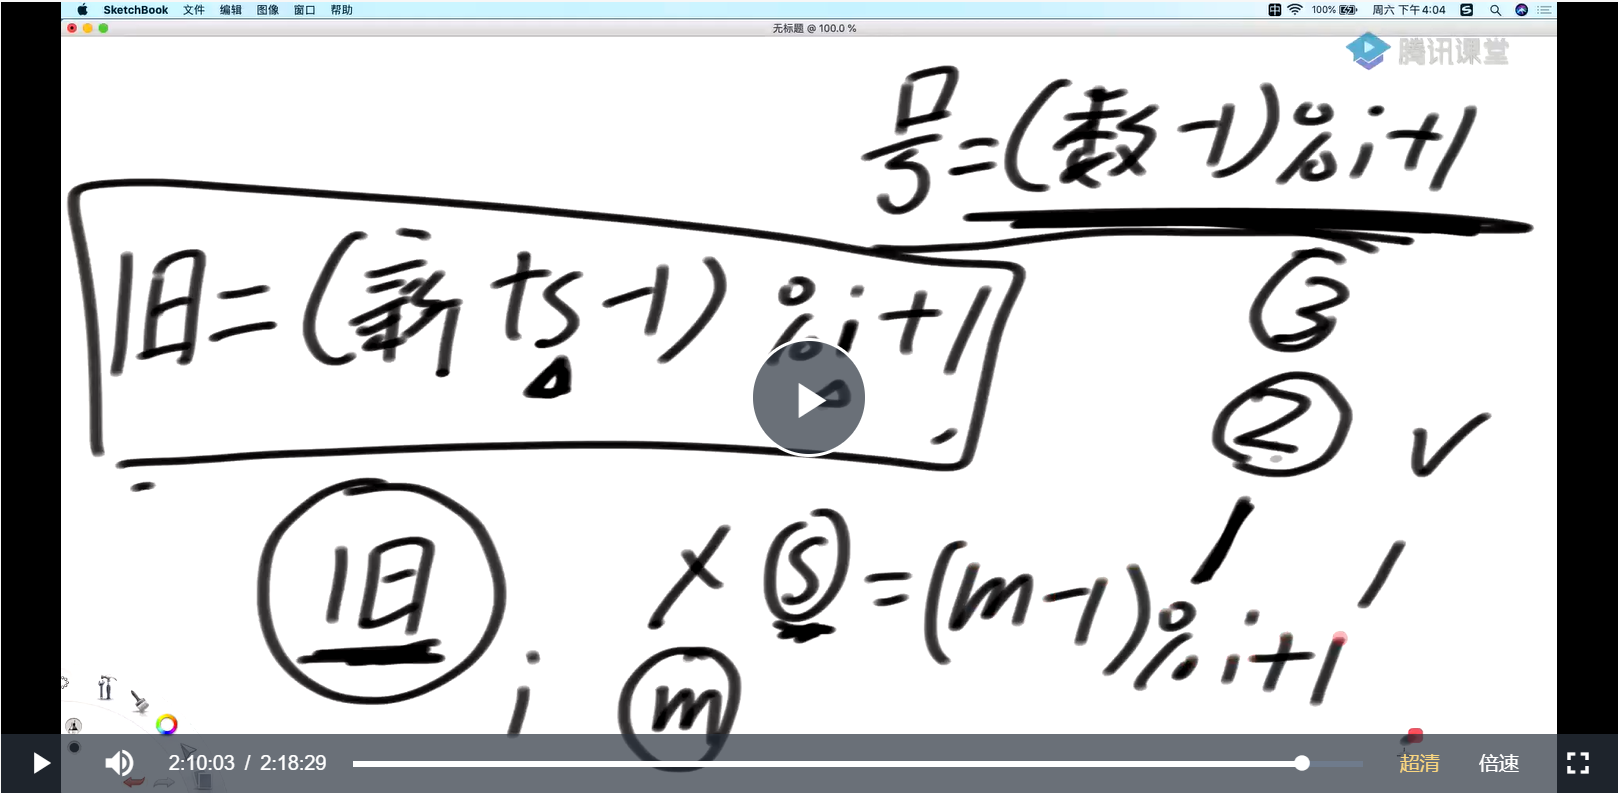 SketchBook 文件 编辑 图像 窗口 帮助 100% 周六 下午4:04
无标题 @ 100.0 %
腾讯课堂
号=(数-1)%i+1
旧=(新+s-1)%i+1
3
2
旧
s=(m-1)%i+1
i
m
2:10:03 / 2:18:29 超清 倍速